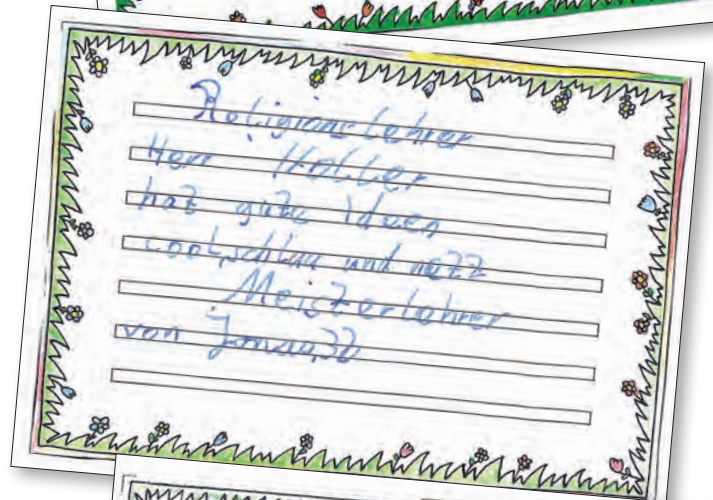 Religionslehrer
Herr Koller
hat gute Ideen
cool, schlau und nett
Meisterlehrer
von Jonas, 3b